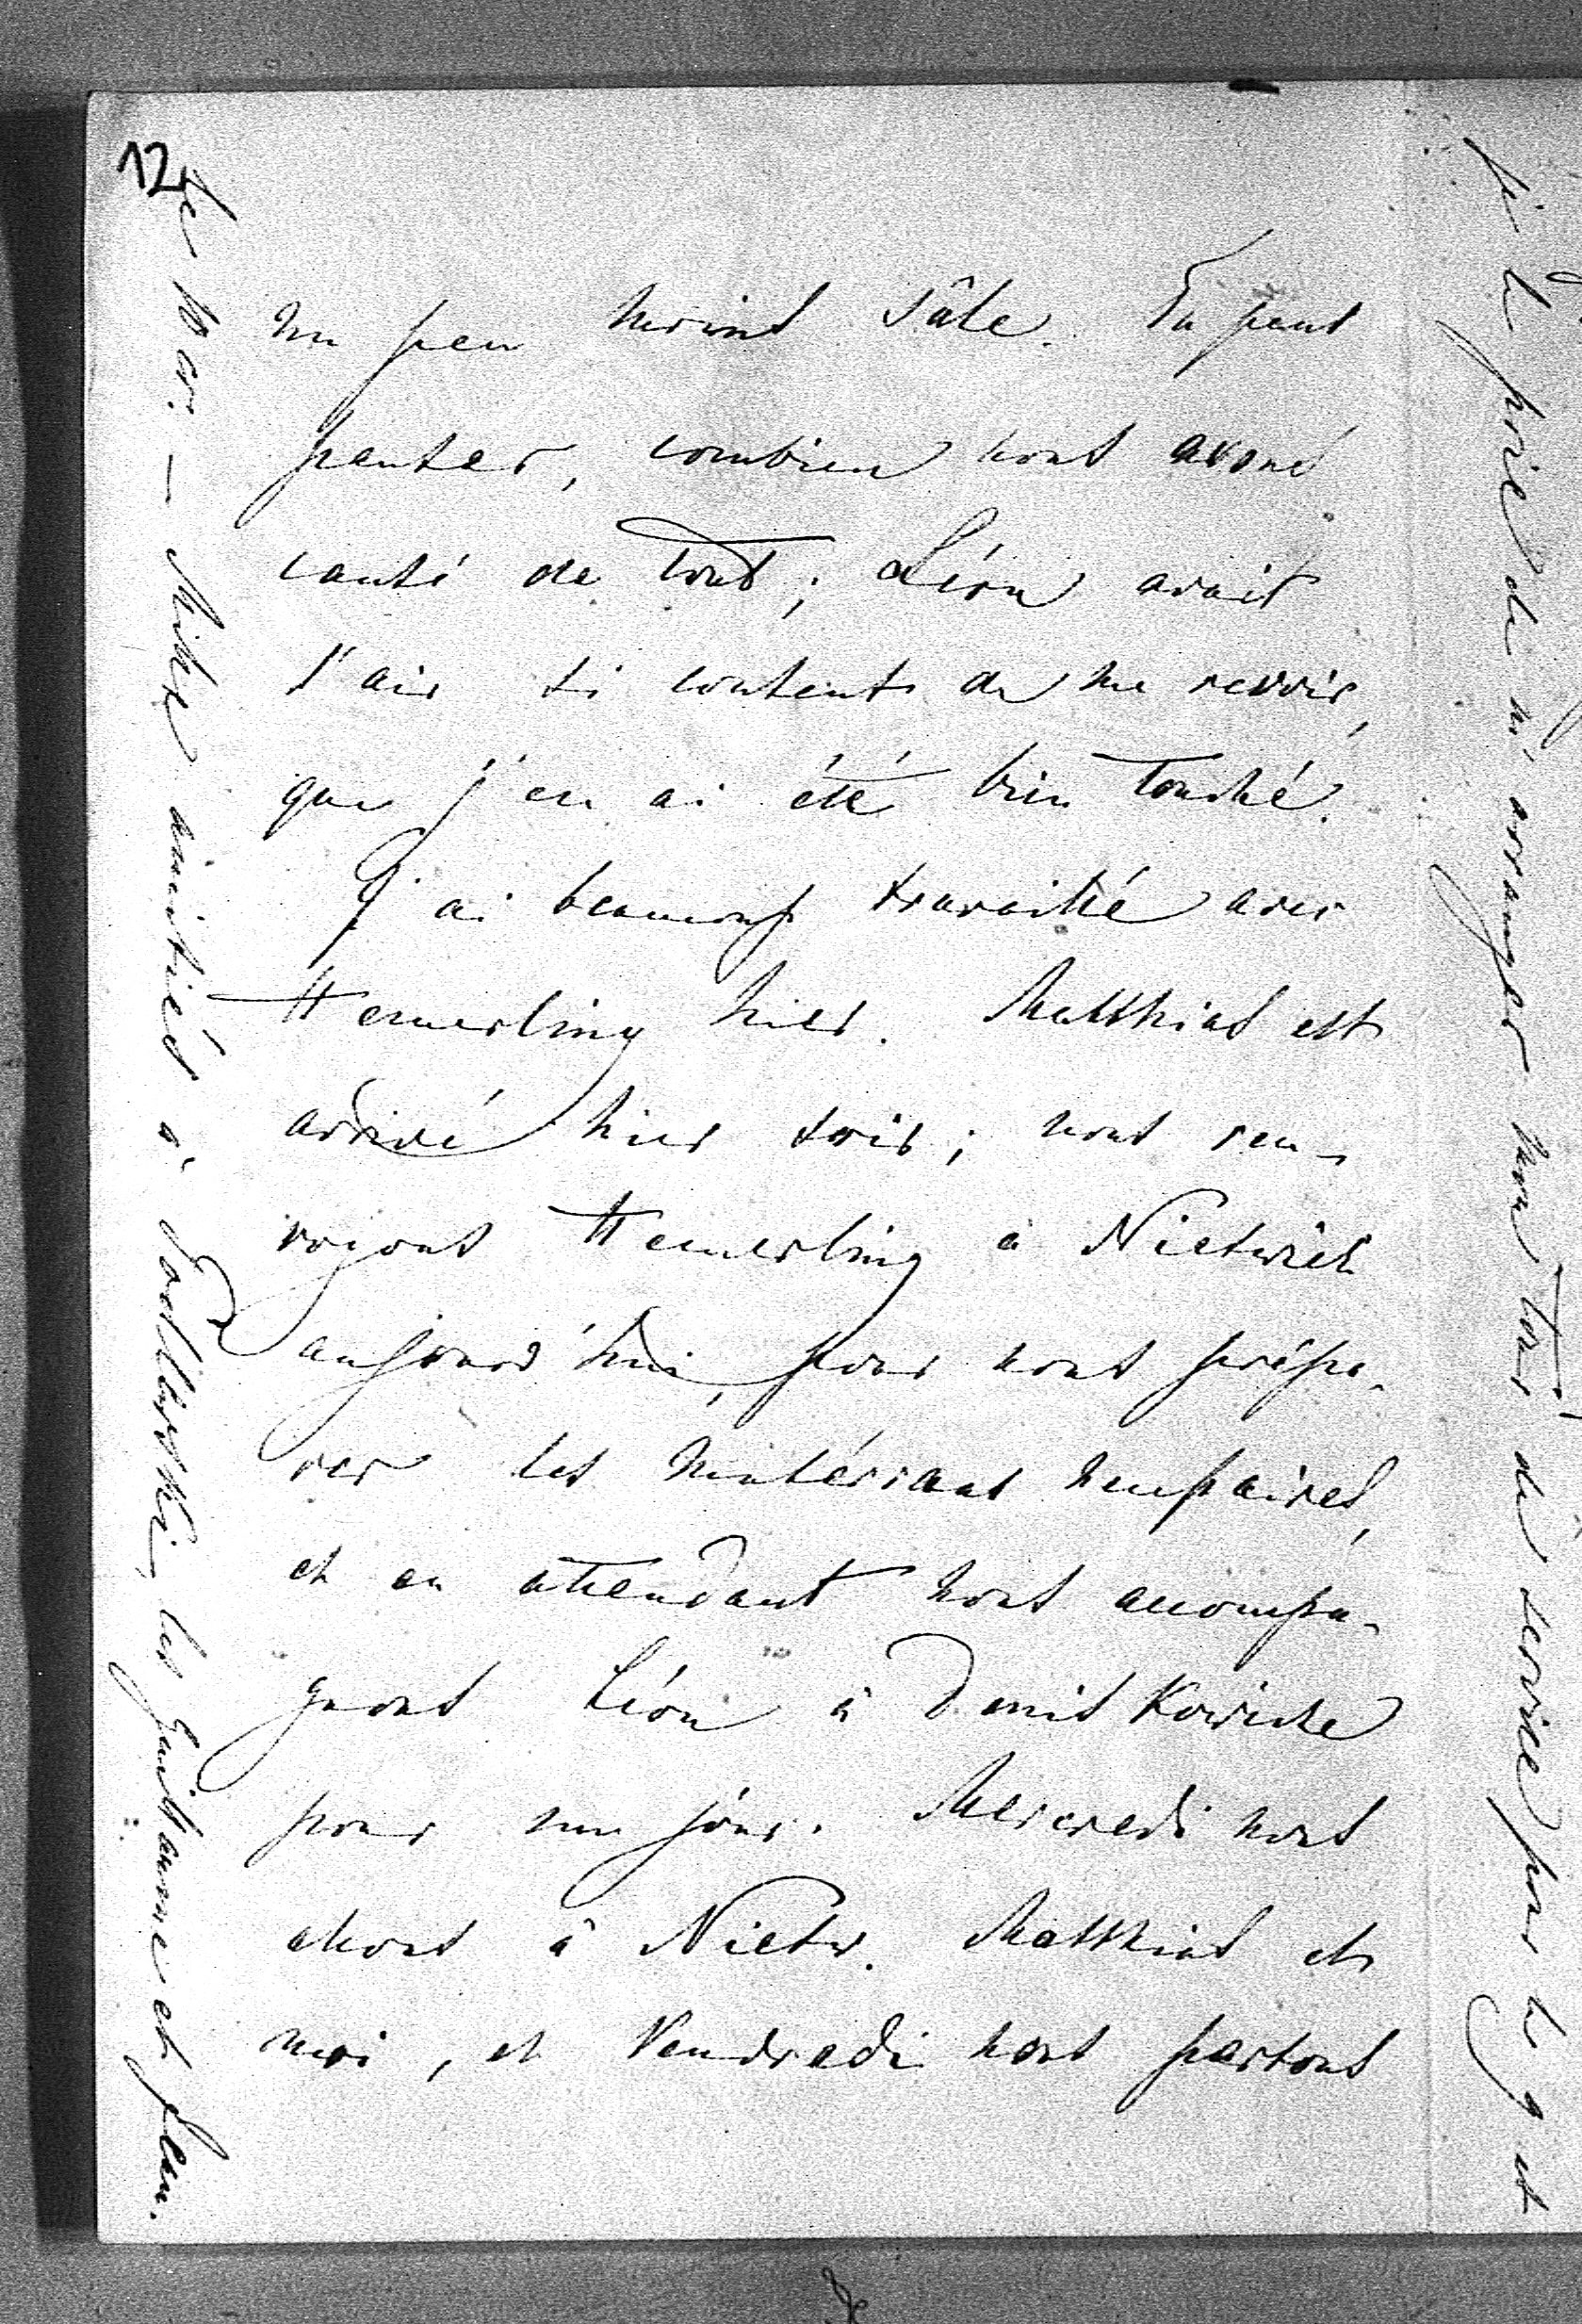 12
un peu moins sâle. Tu peus
penser, combien nous avons
causé de tout; Léon avait
l'air si content de me revoir,
que j'en ai été bien touché.
J'ai beaucoup travaillé avec
Hemerling hier. Matthias est
arrivé hier soir; nous ren-
voyons Hemerling à Nieswież
aujourd'hui, pour nous prépa-
rer les matériaux nécessaires,
et en attendant nous accompa-
gnons Léon à
pour un jour. Mercredi nous
allons à Niesw. Matthias et
moi, et Vendredi nous partons
le 10 av. — Mille amitiés à Godlewski, les Guillaume et Jean.
je te prie de m'arranger mon tour de service pour le 9 et